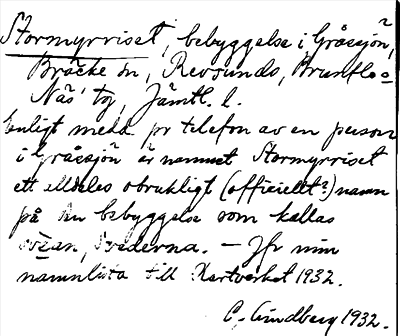 Stormyrriset, bebyggelse i Gråssjön,
Bräcke sn, Revsunds, Brunflo o
Näs' tg, Jämtl. l.
Enligt medd. pr telefon av en person
i Gråssjön är namnet Stormyrriset
ett alldeles obrukligt (officiellt?) namn
på den bebyggelse som kallas
Svederna. – Jfr min
namnlista till Kartverket 1932.
C. Lindberg 1932.